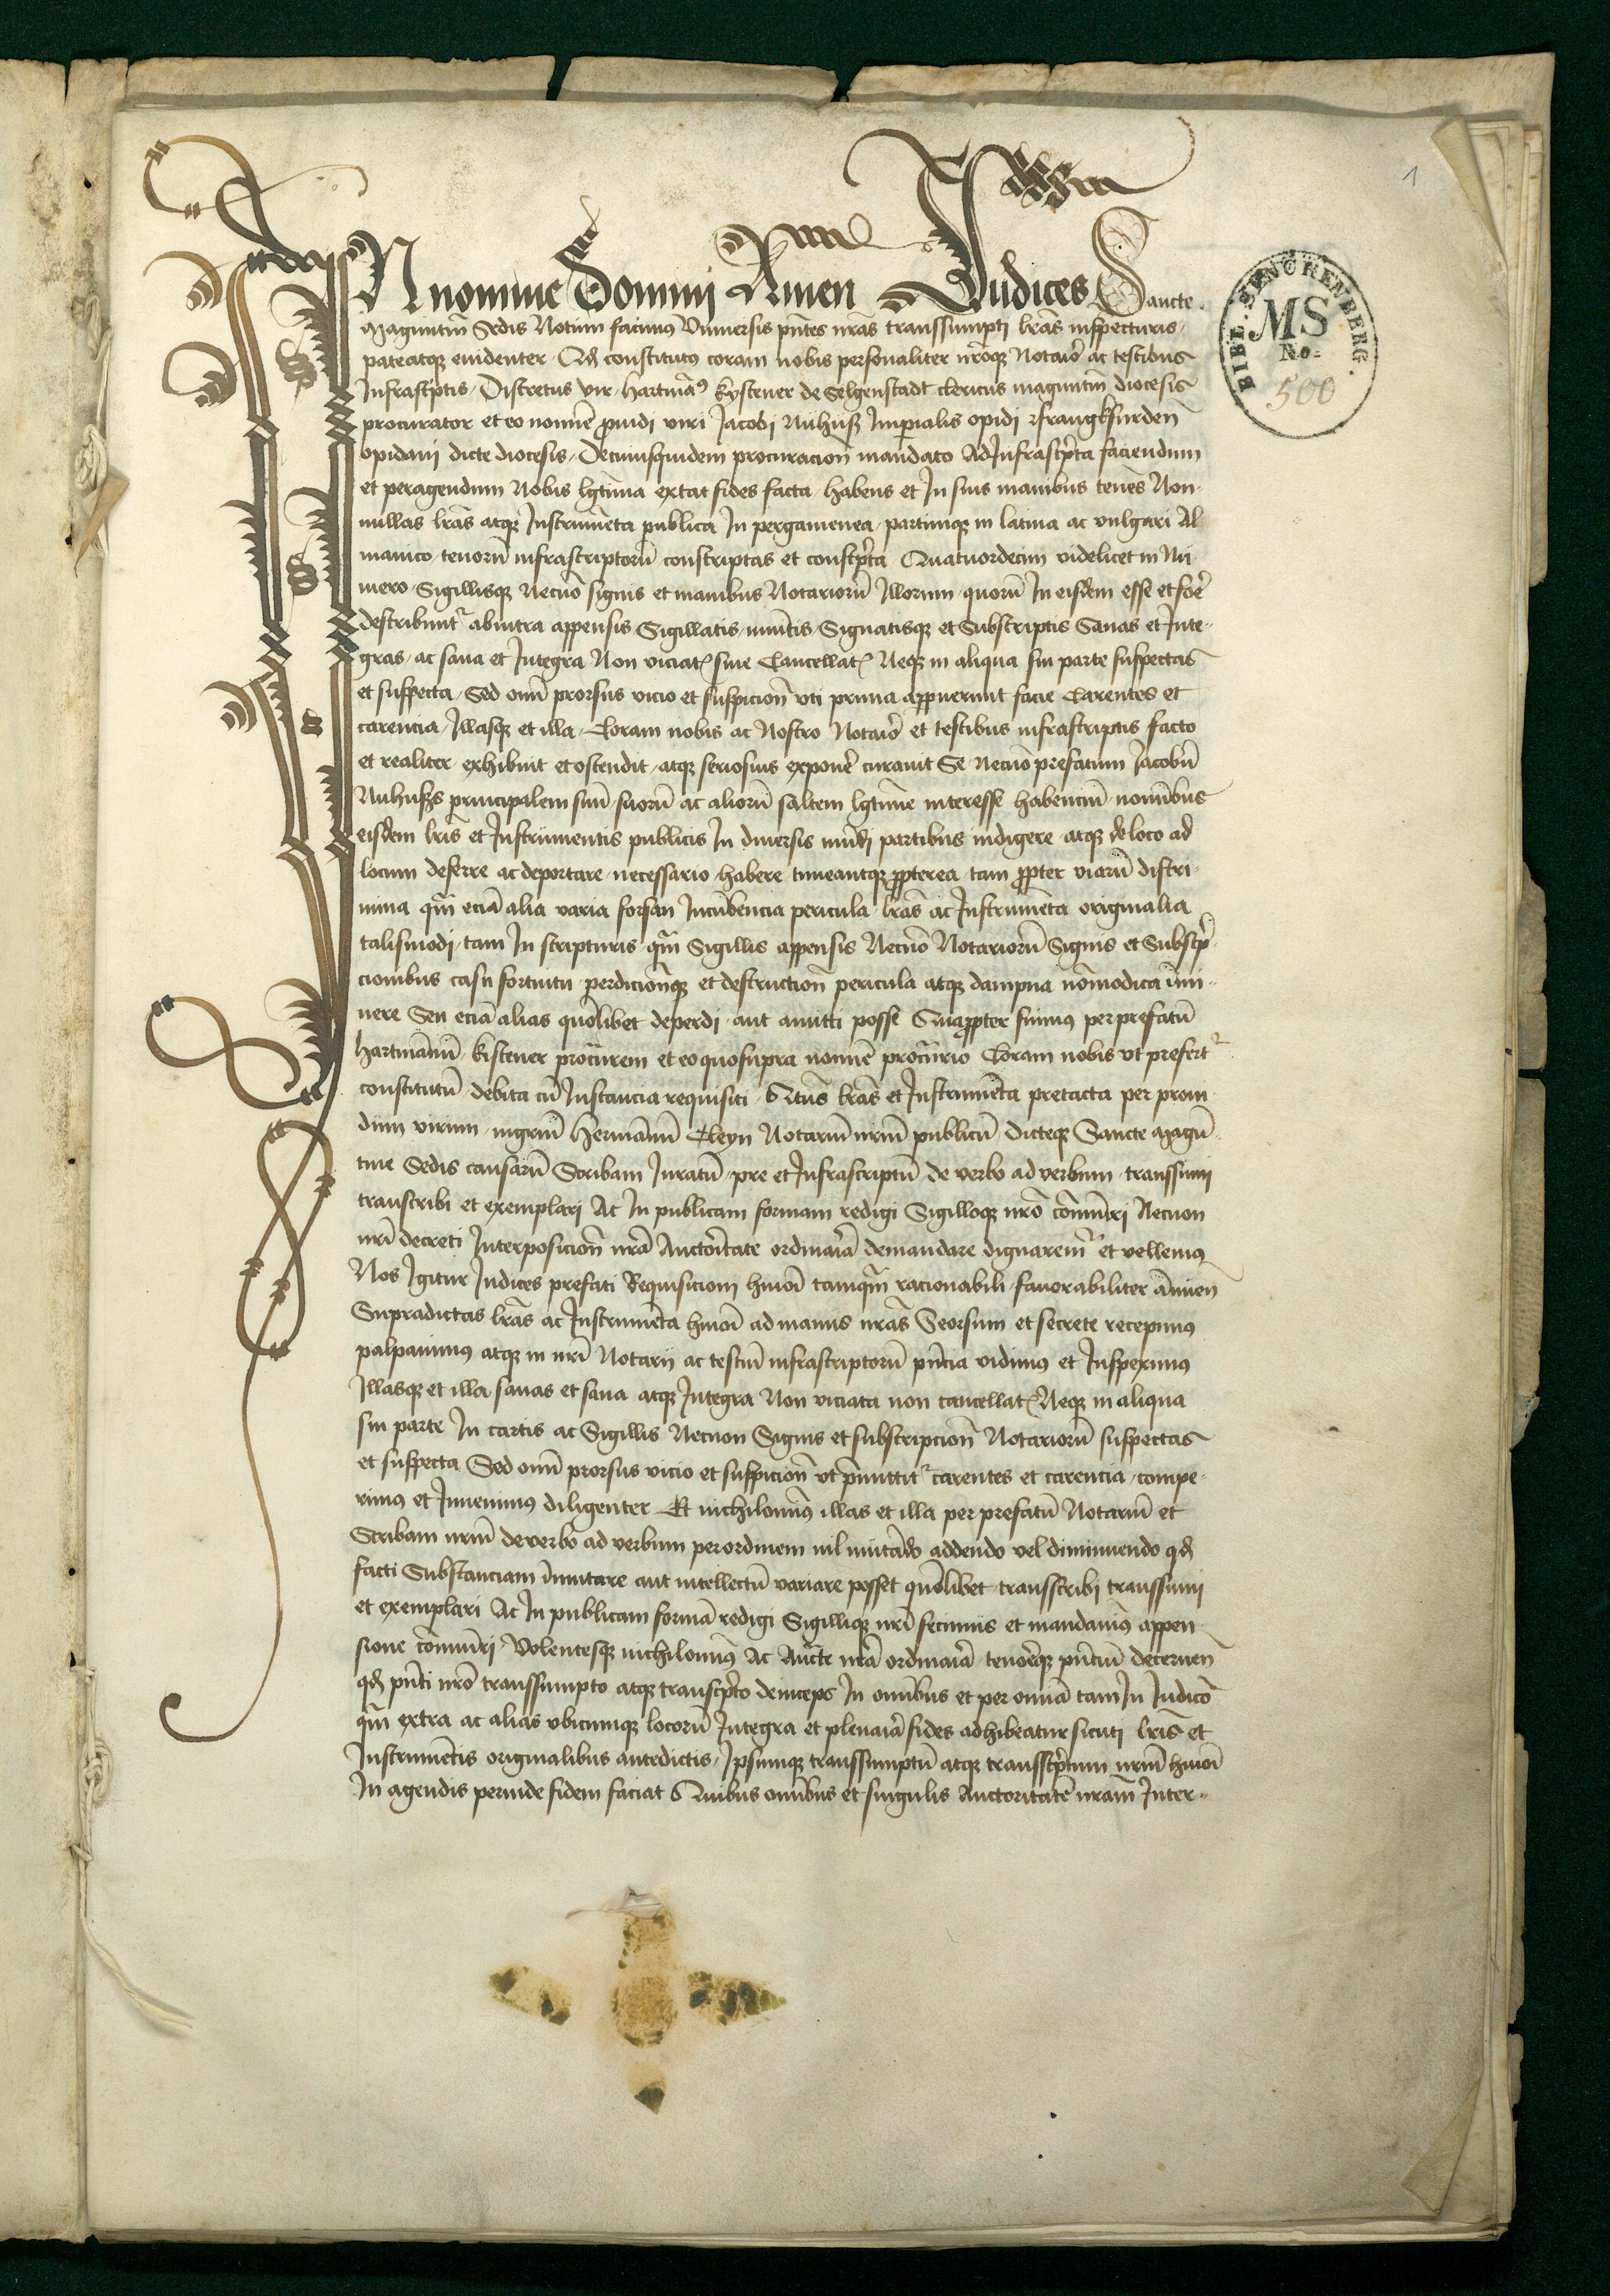 1
IN nomine Domini Amen Iudices Sancte
Magūntin̄ Sedis Notum facimus Vniuersis pn̄tes nr̄as transsumpti lr̄as inspecturis
pateatque euidenter Qd̄ constitutus coram nobis personaliter nr̄oque Notario ac testibus
Infrascriptis Discretus vir Hartmāꝰ kystener de Selgenstadt clericus maguntin̄ diocesis
procurator et eo nomīe ꝓuidi viri Iacobi Nuhuß Imperialis opidi ffrangkfurden̄
opidani dicte diocesis De cuiusquidem procuracion̄ mandato Ad Infrascr̄pta faciendum
et peragendum Nobis lgt̄ima extat fides facta habens et In suis manibus tenēs Non
nullas lr̄as atque Instrumēta publica In pergamenea partimque in latina ac vulgari Al
manico tenorū infrascriptorū conscriptas et conscr̄pta Quatuordecim videlicet in Nū
mero Sigillisque Necnō signis et manibus Notariorū Illorum quorū In eisdem esse et fore
describunt̄ abintra appensis Sigillatis mūitis Signatisque et Subscriptis Sanas et Inte
gras ac sana et Integra Non viciat siue Cancellat Neque in aliqua sui parte suspectas
et suspecta Sed omī prorsus vicio et suspicion̄ vti prima apparuerunt facie Carentes et
carencia Illasque et illa Coram nobis ac Nostro Notario et testibus infrascriptis facto
et realiter exhibuit et ostendit atque seriosius exponē curauit Se necnō prefatum Iacobū
Nuhußs principalem suū suorū ac aliorū saltem lgt̄ime interesse habenciū nomībus
eisdem lr̄is et Instrumentis publicis In diuersis mūdi partibus indigere atque de loco ad
locum deferre ac deportare necessario habere timeantque ꝓpterea tam ꝓpter viarū discri
mina qm̄ eciā alia varia forsan Incūbencia pericula lr̄as ac Instrumēta originalia
talismodi tam In scripturis qm̄ Sigillis appensis Necnō Notariorū Signis et Subscrp̄
cionibus casu fortuitu perdicionēque et destruction̄ pericula atque dampna nōmodica īmi
nere Seu eciā alias quōlibet deperdi aut amitti posse Quaꝓpter fuimus per prefatū
Hartmānū kistener procūrem et eo quo supra nomīe procūrio Coram nobis vt prefert
constitutū debita cū Instancia requisiti Qtūs lr̄as et Instrumēta pretacta per proui
dum virum mgrm̄ Hermānū Cleyn Notariū nrm̄ publicū dicteque Sancte Magū
tine Sedis causarū Scribam Iuratū pre et Infrascriptū de verbo ad verbum transsumi
transcribi et exemplari Ac In publicam formam redigi Sigilloque nrō cōmūiri Necnon
nrī decreti Interposicion̄ nrā Auctoritate ordinariā demandare dignarem̄ et vellemus
Nos Igitur Iudices prefati Requisicioni hmōi tamqm̄ racionabili fauorabiliter ānuen
Supradictas lr̄as ac Instrumēta hmōi ad manus nr̄as Seorsum et secrete recepimus
palpauimus atque in nrī Notarij ac testiū infrascriptorū pn̄cia vidimus et Inspeximus
Illasque et illa sanas et sana atque Integra Non viciata non cancellat Neque in aliqua
sui parte In cartis ac Sigillis Necnon Signis et subscripcion̄ Notariorū suspectas
et suspecta Sed omī prorsus vicio et suspicion̄ vt p̄mittit carentes et carencia compe
rimus et Inuenimus diligenter Et nichilomiꝰ illas et illa per prefatū Notariū et
Scribam nrm̄ de verbo ad verbum per ordinem nil mutādo addendo vel diminuendo qd̄
facti Substanciam īmutare aut intellectū variare posset quōlibet transscribi transsumi
et exemplari Ac In publicam formā redigi Sigillique nrī fecimus et mandauimꝰ appen
sione cōmūiri Volentesque nichilomiꝰ Ac Auctē nrā ordinariā tenorēque pn̄ciū decernen
qd̄ pn̄ti nrō transsumpto atque transcrp̄to deinceps In omībus et per omnīa tam In Iudicō
qm̄ extra ac alias vbicumque locorū Integra et plenariā fides adhibeatur sicuti lr̄is et
Instrumētis originalibus antedictis Ipsumque transsumptū atque transscrp̄tum nrm̄ hmōi
In agendis perinde fidem faciat Quibus omībus et singulis Auctoritatē nram̄ Inter
BIBL. SENCKENBERG.
MS
No.
500